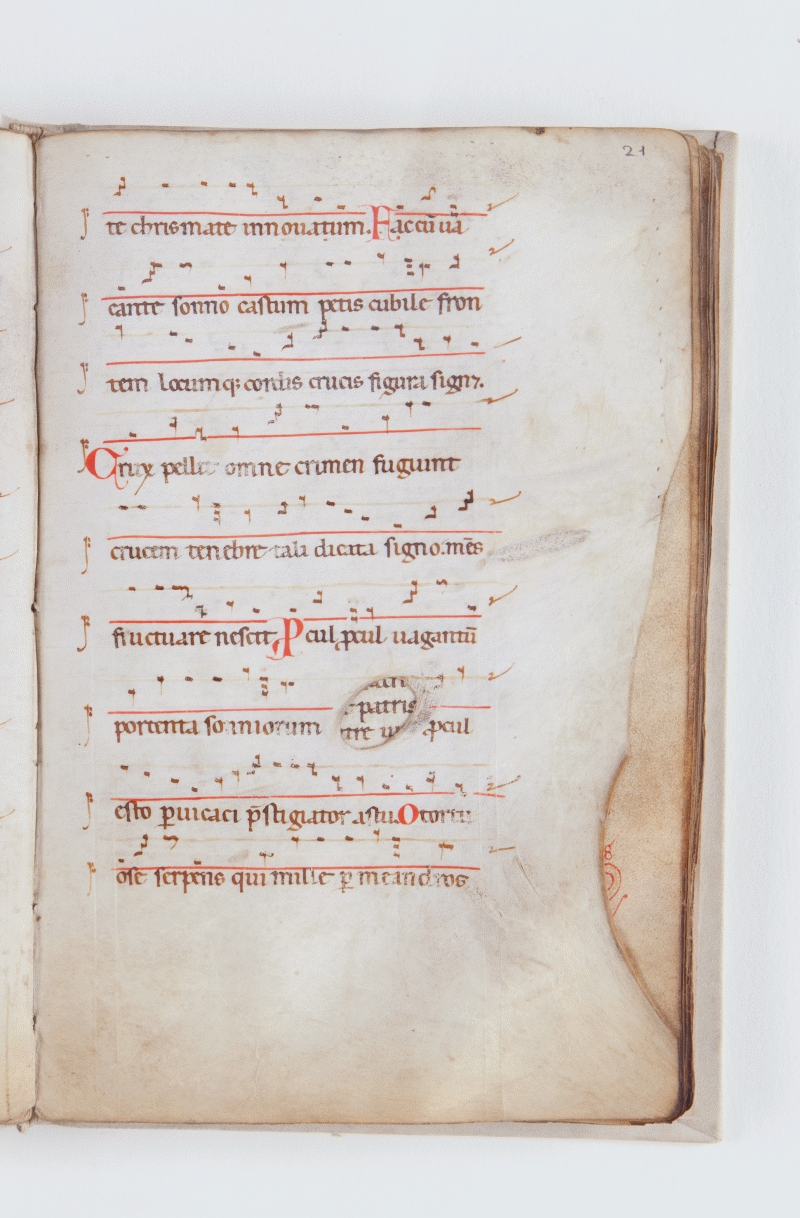 21
te chrismate innouatum. Fac cū uā
cante sonno castum petis cubile fron
tem locumq; cordis crucis figura sign⁊.
Crux pellit omne crimen fugiunt
crucem tenebre tali dicata signo. mēs
fluctuare nescit P cul ꝓcul uagantiū
portenta somniorum patris ꝓcul
esto ꝑuicaci p̄stigiator astu. O tortu
ose serpens qui mille ꝑ meandros